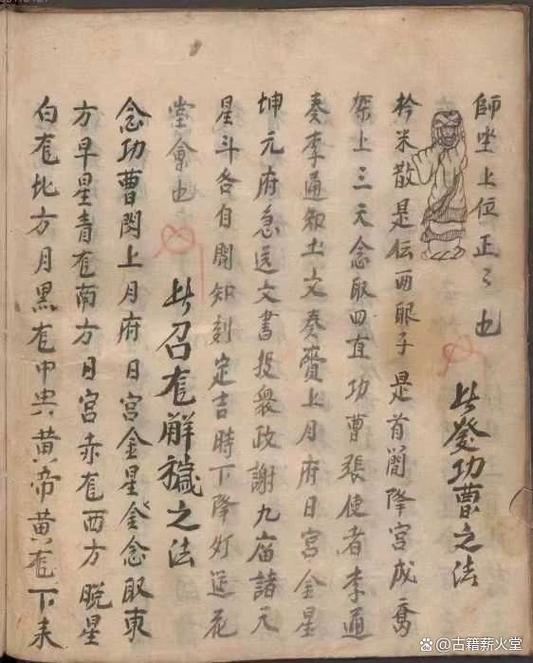 師坐上位正々也
此發功曹之法
衿米散是伝两眼子是首閣降宮成奮
架上三天念取四直功曹張使者李通
奏李通知土文奏賫上月府日宮金星
坤元府急送文書捉衆政謝九庙諸元
星斗各自開知刻定吉時下降好送花
堂會也
此召旄解穢之法
念功曹閔上月府日宮金星金念取東
方早星青旄南方日宮赤旄西方脱星
白旄北方月黑旄中央黄帝黄旄下来
@古籍薪火堂